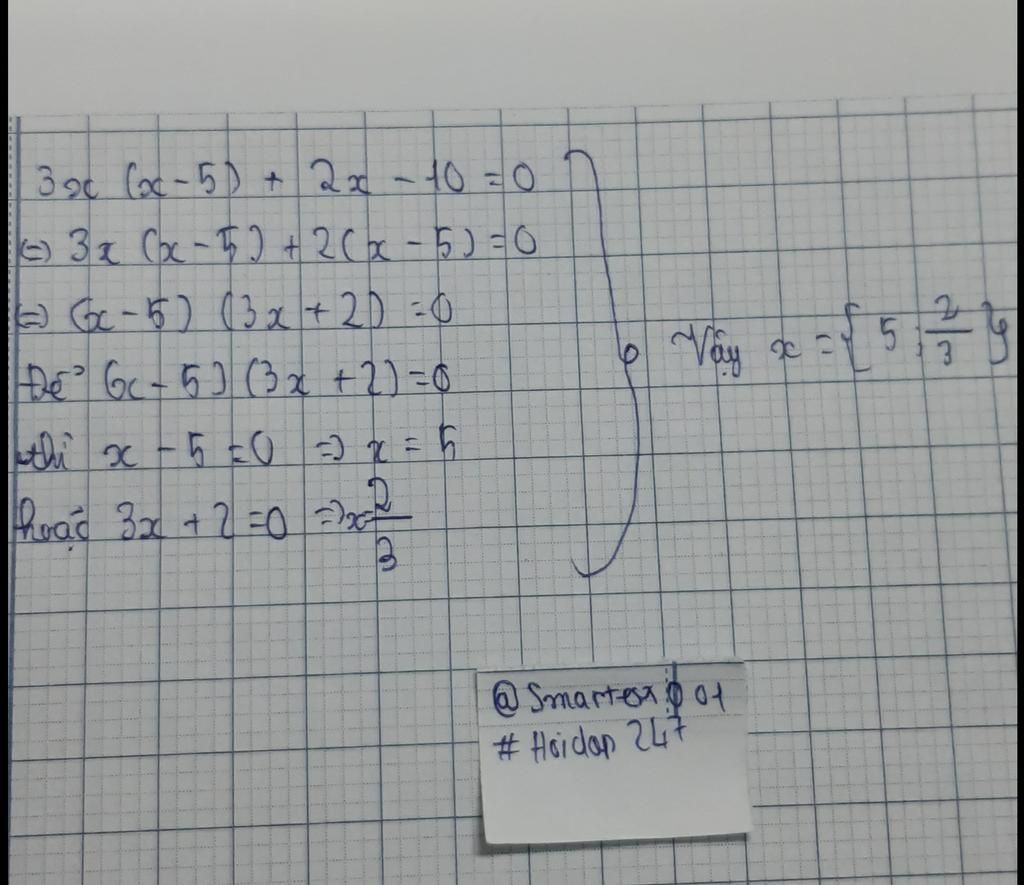 3x (x-5) + 2x - 10 = 0
⇔ 3x (x - 5) + 2(x - 5) = 0
⇔ (x - 5) (3x + 2) = 0
Để (x - 5) (3x + 2) = 0
thì x - 5 = 0 ⇒ x = 5
hoặc 3x + 2 = 0 ⇒ x = 2/3
Vậy x = { 5 ; 2/3 }
@Smartex 01
# Hoidap 247